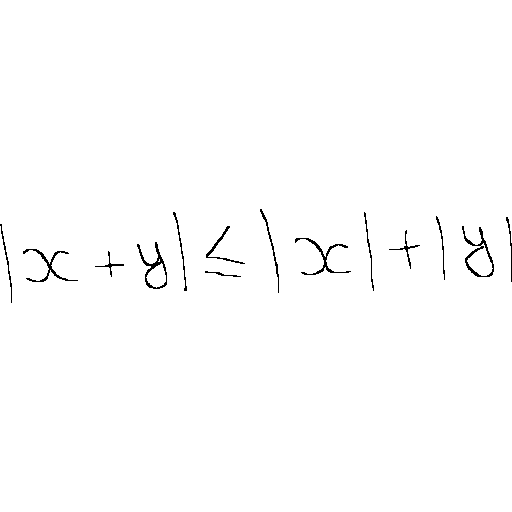 |x + y| ≤ |x| + |y|